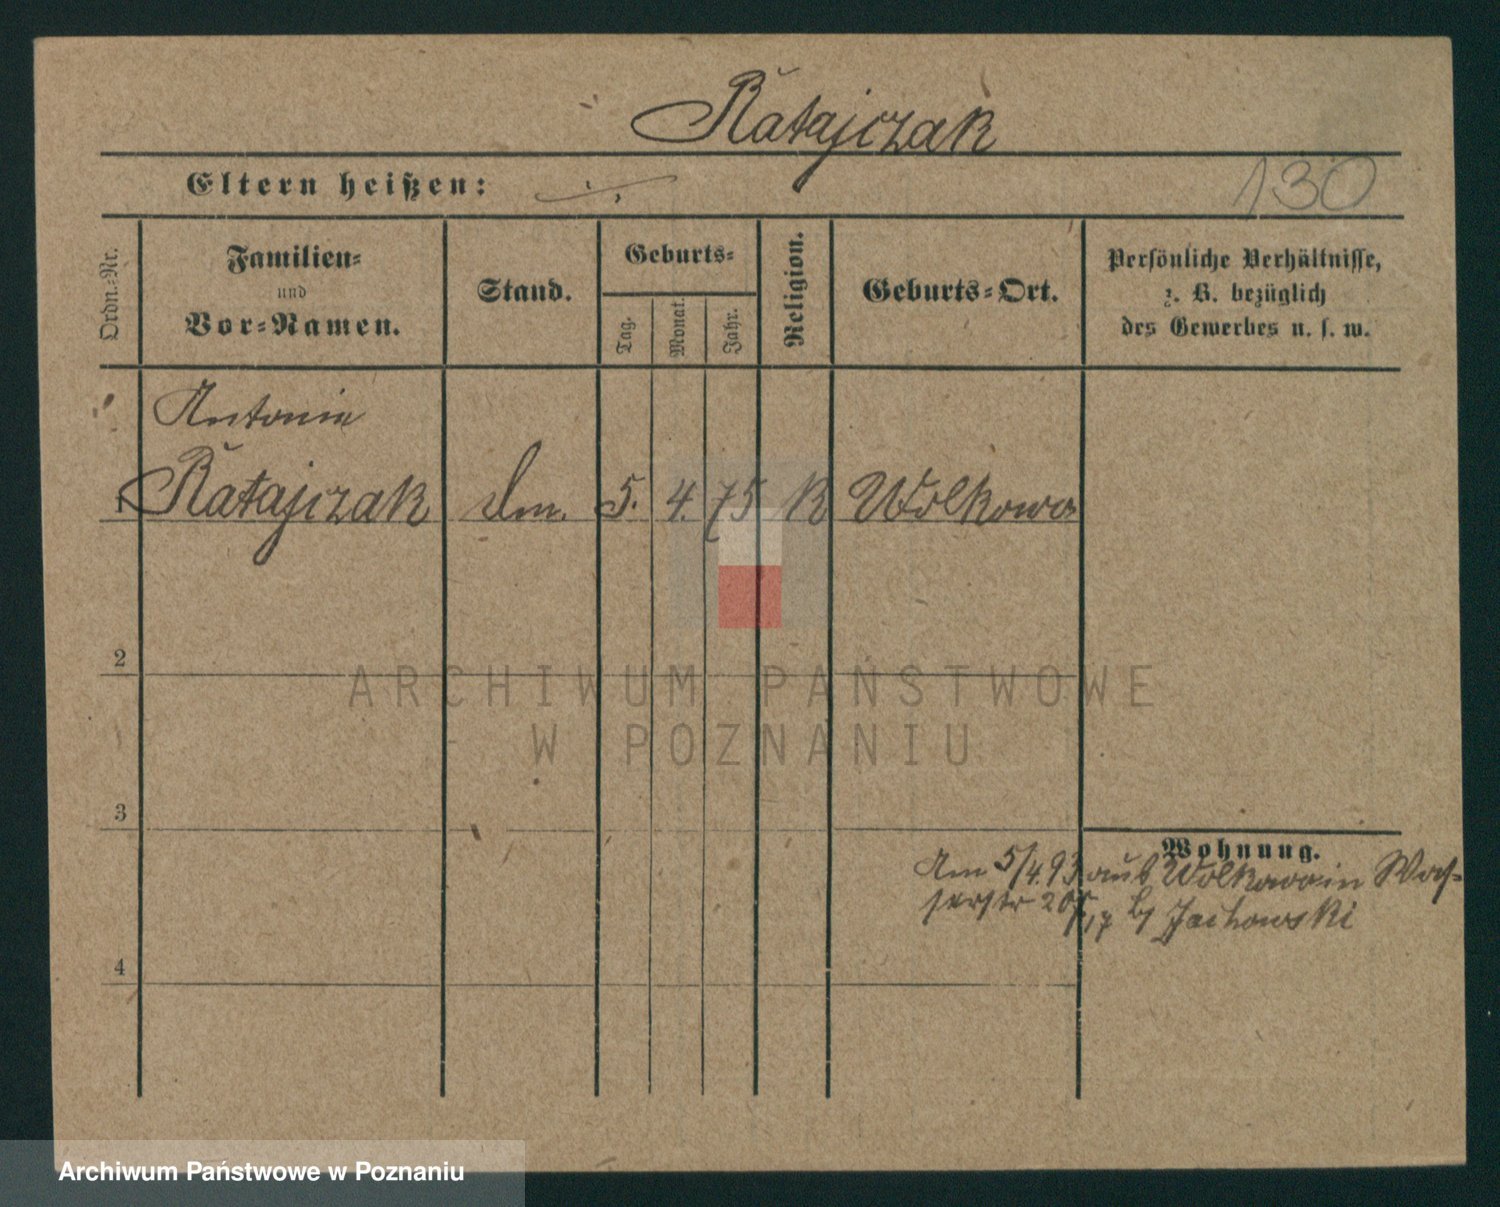 Ratajczak
Eltern heißen: ./.
130
Ordn.=Nr.
Familien=
und
Vor=Namen.
Stand.
Geburts=
Tag.
Monat.
Jahr.
Religion.
Geburts=Ort.
Persönliche Verhältnisse,
z. B. bezüglich
des Gewerbes u. s. w.
Antonie
1 Ratajczak 5. 4. 75 K Wolkowo
2
3
4
Wohnung.
Am 5/4.93 aus Wolkowo in Was=
serstr 20 b/ Jachowski
ARCHIWUM PAŃSTWOWE
W POZNANIU
Archiwum Państwowe w Poznaniu